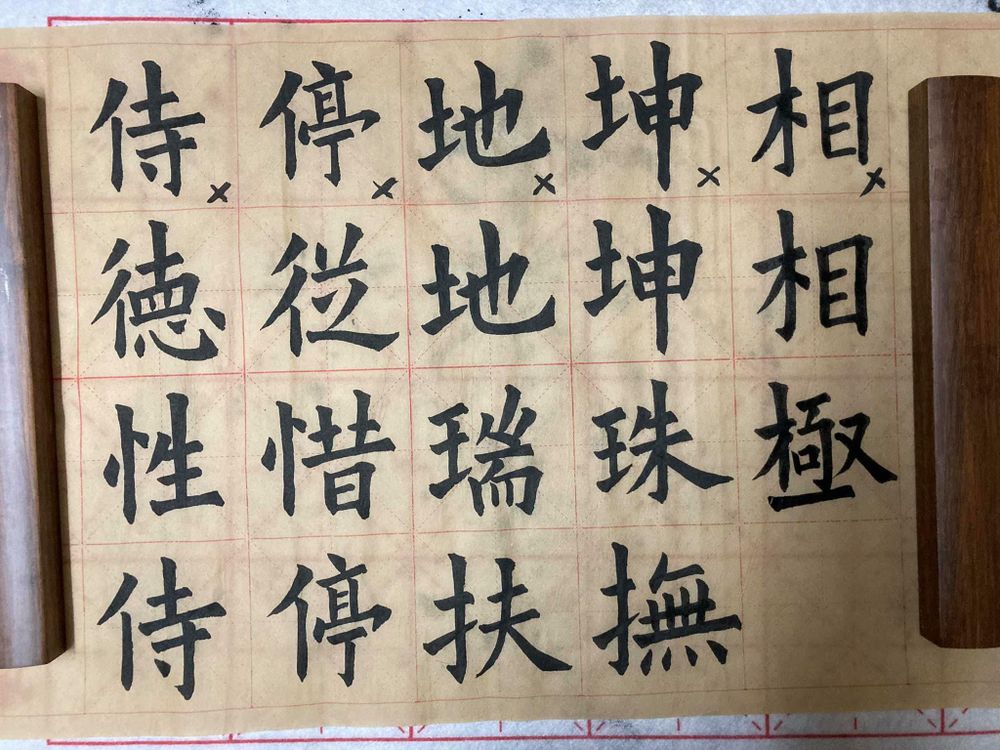 侍停地坤相
徳従地坤相
性惜瑞珠極
侍停扶撫